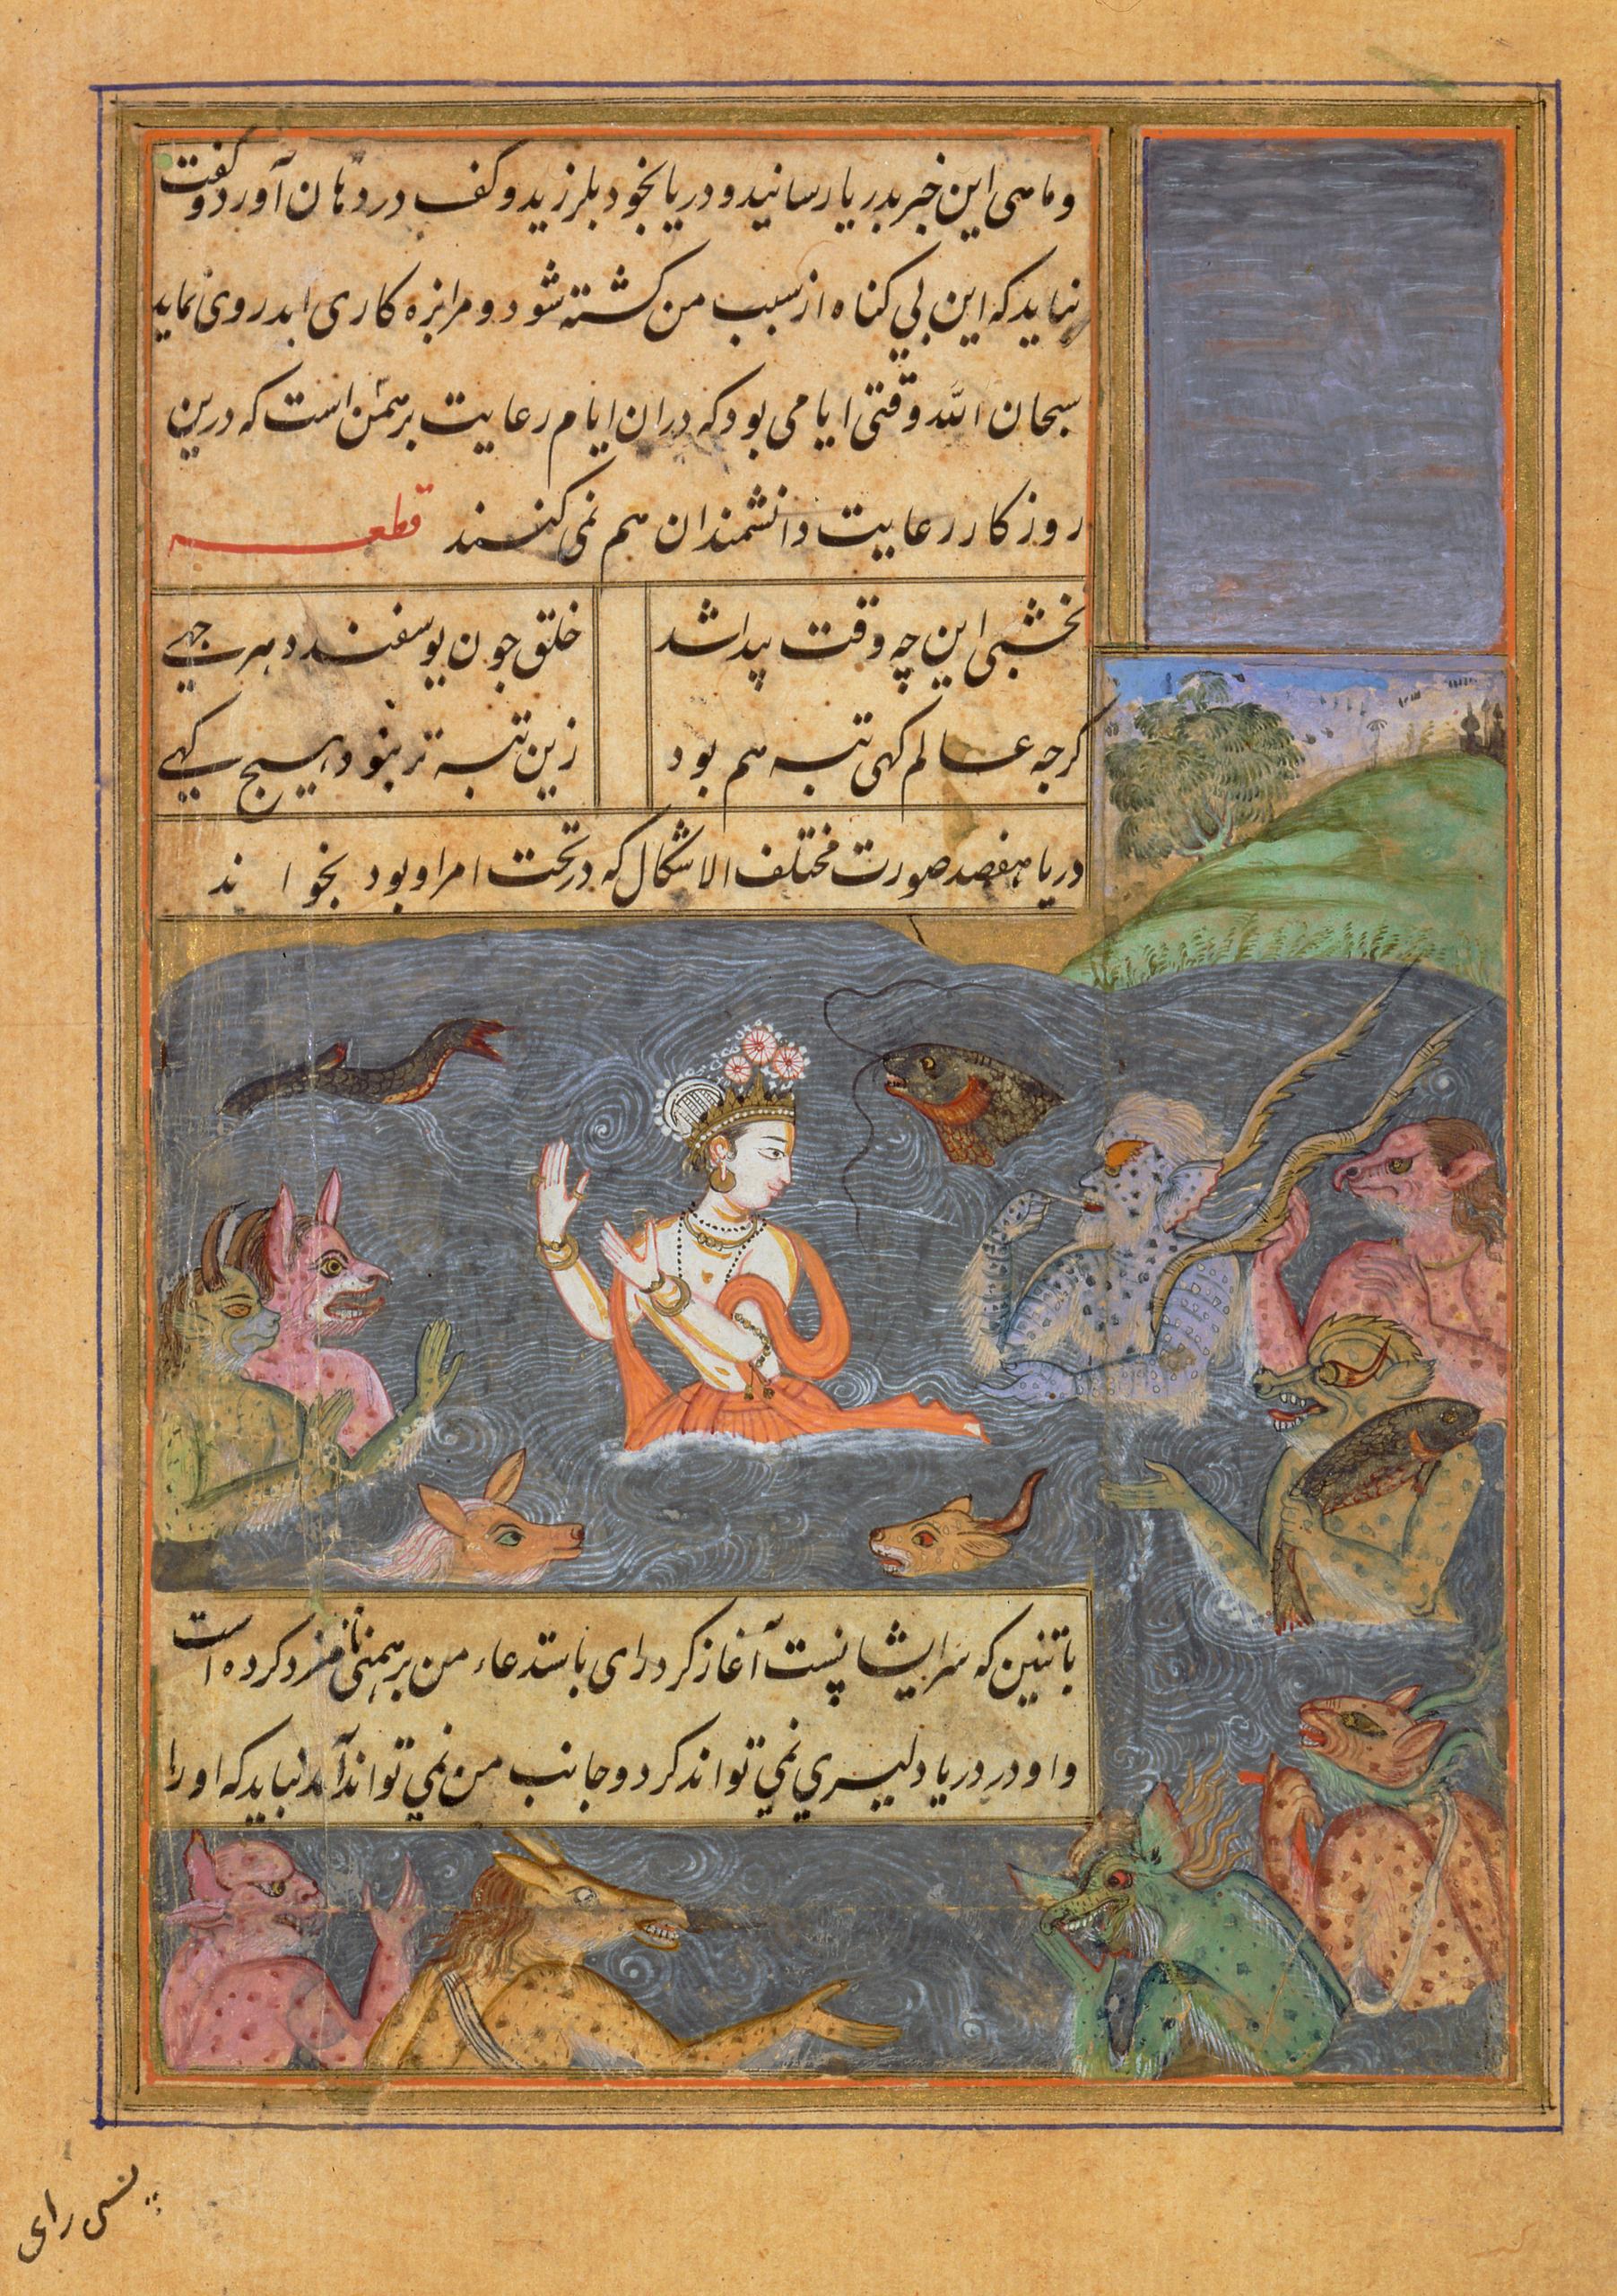 و ماهی این خبر بدریا رسانید و دریا بخود بلرزید و کف در دهان آورد و گفت
نباید که این بی کناه از سبب من کشته شود و مرا بزه کاری ابد روی نماید
سبحان الله وقتی ایامی بود که دران ایام رعایت برهمن است که درین
روزکار رعایت دانشمندان هم نمی کنند قطعه
نخشبی این چه وقت پیدا شد خلق جون یوسفند و هر جهی
کرچه عالم کهی تبه هم بود زین تبه تر نبود هیچ کهی
دریا هفصد صورت مختلف الاشکال که در تحت امر او بود بخواند
با تنین که سر ایشانست آغاز کرد رای باستدعاء من برهمنی نامزد کرده است
و او در دریا دلیری نمی تواند کرد و جانب من نمی تواند آمد نباید که او را
رای